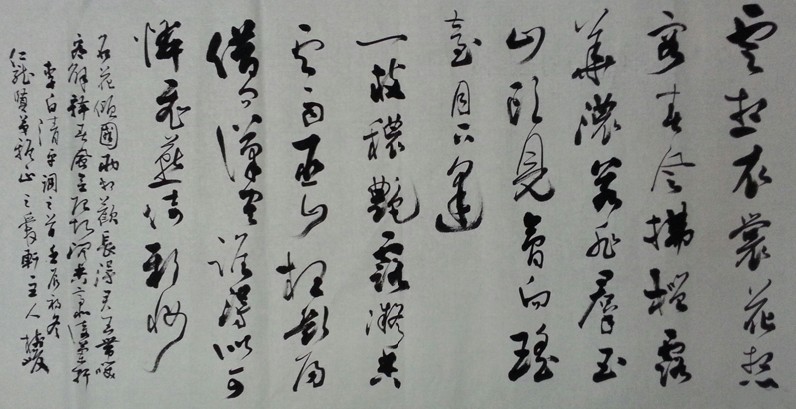 雲想衣裳花想
容春風拂檻露
華濃若非羣玉
山頭見會向瑤
臺月下逢
一枝穠艷露凝香
雲雨巫山枉斷腸
借問漢宮誰得似可
憐飛燕倚新妝
名花傾國兩相歡長得君王帶笑
看解釋春風無限恨沉香亭北倚闌干
李白清平調三首壬辰初冬
仁龍賢弟雅正之愛軒主人